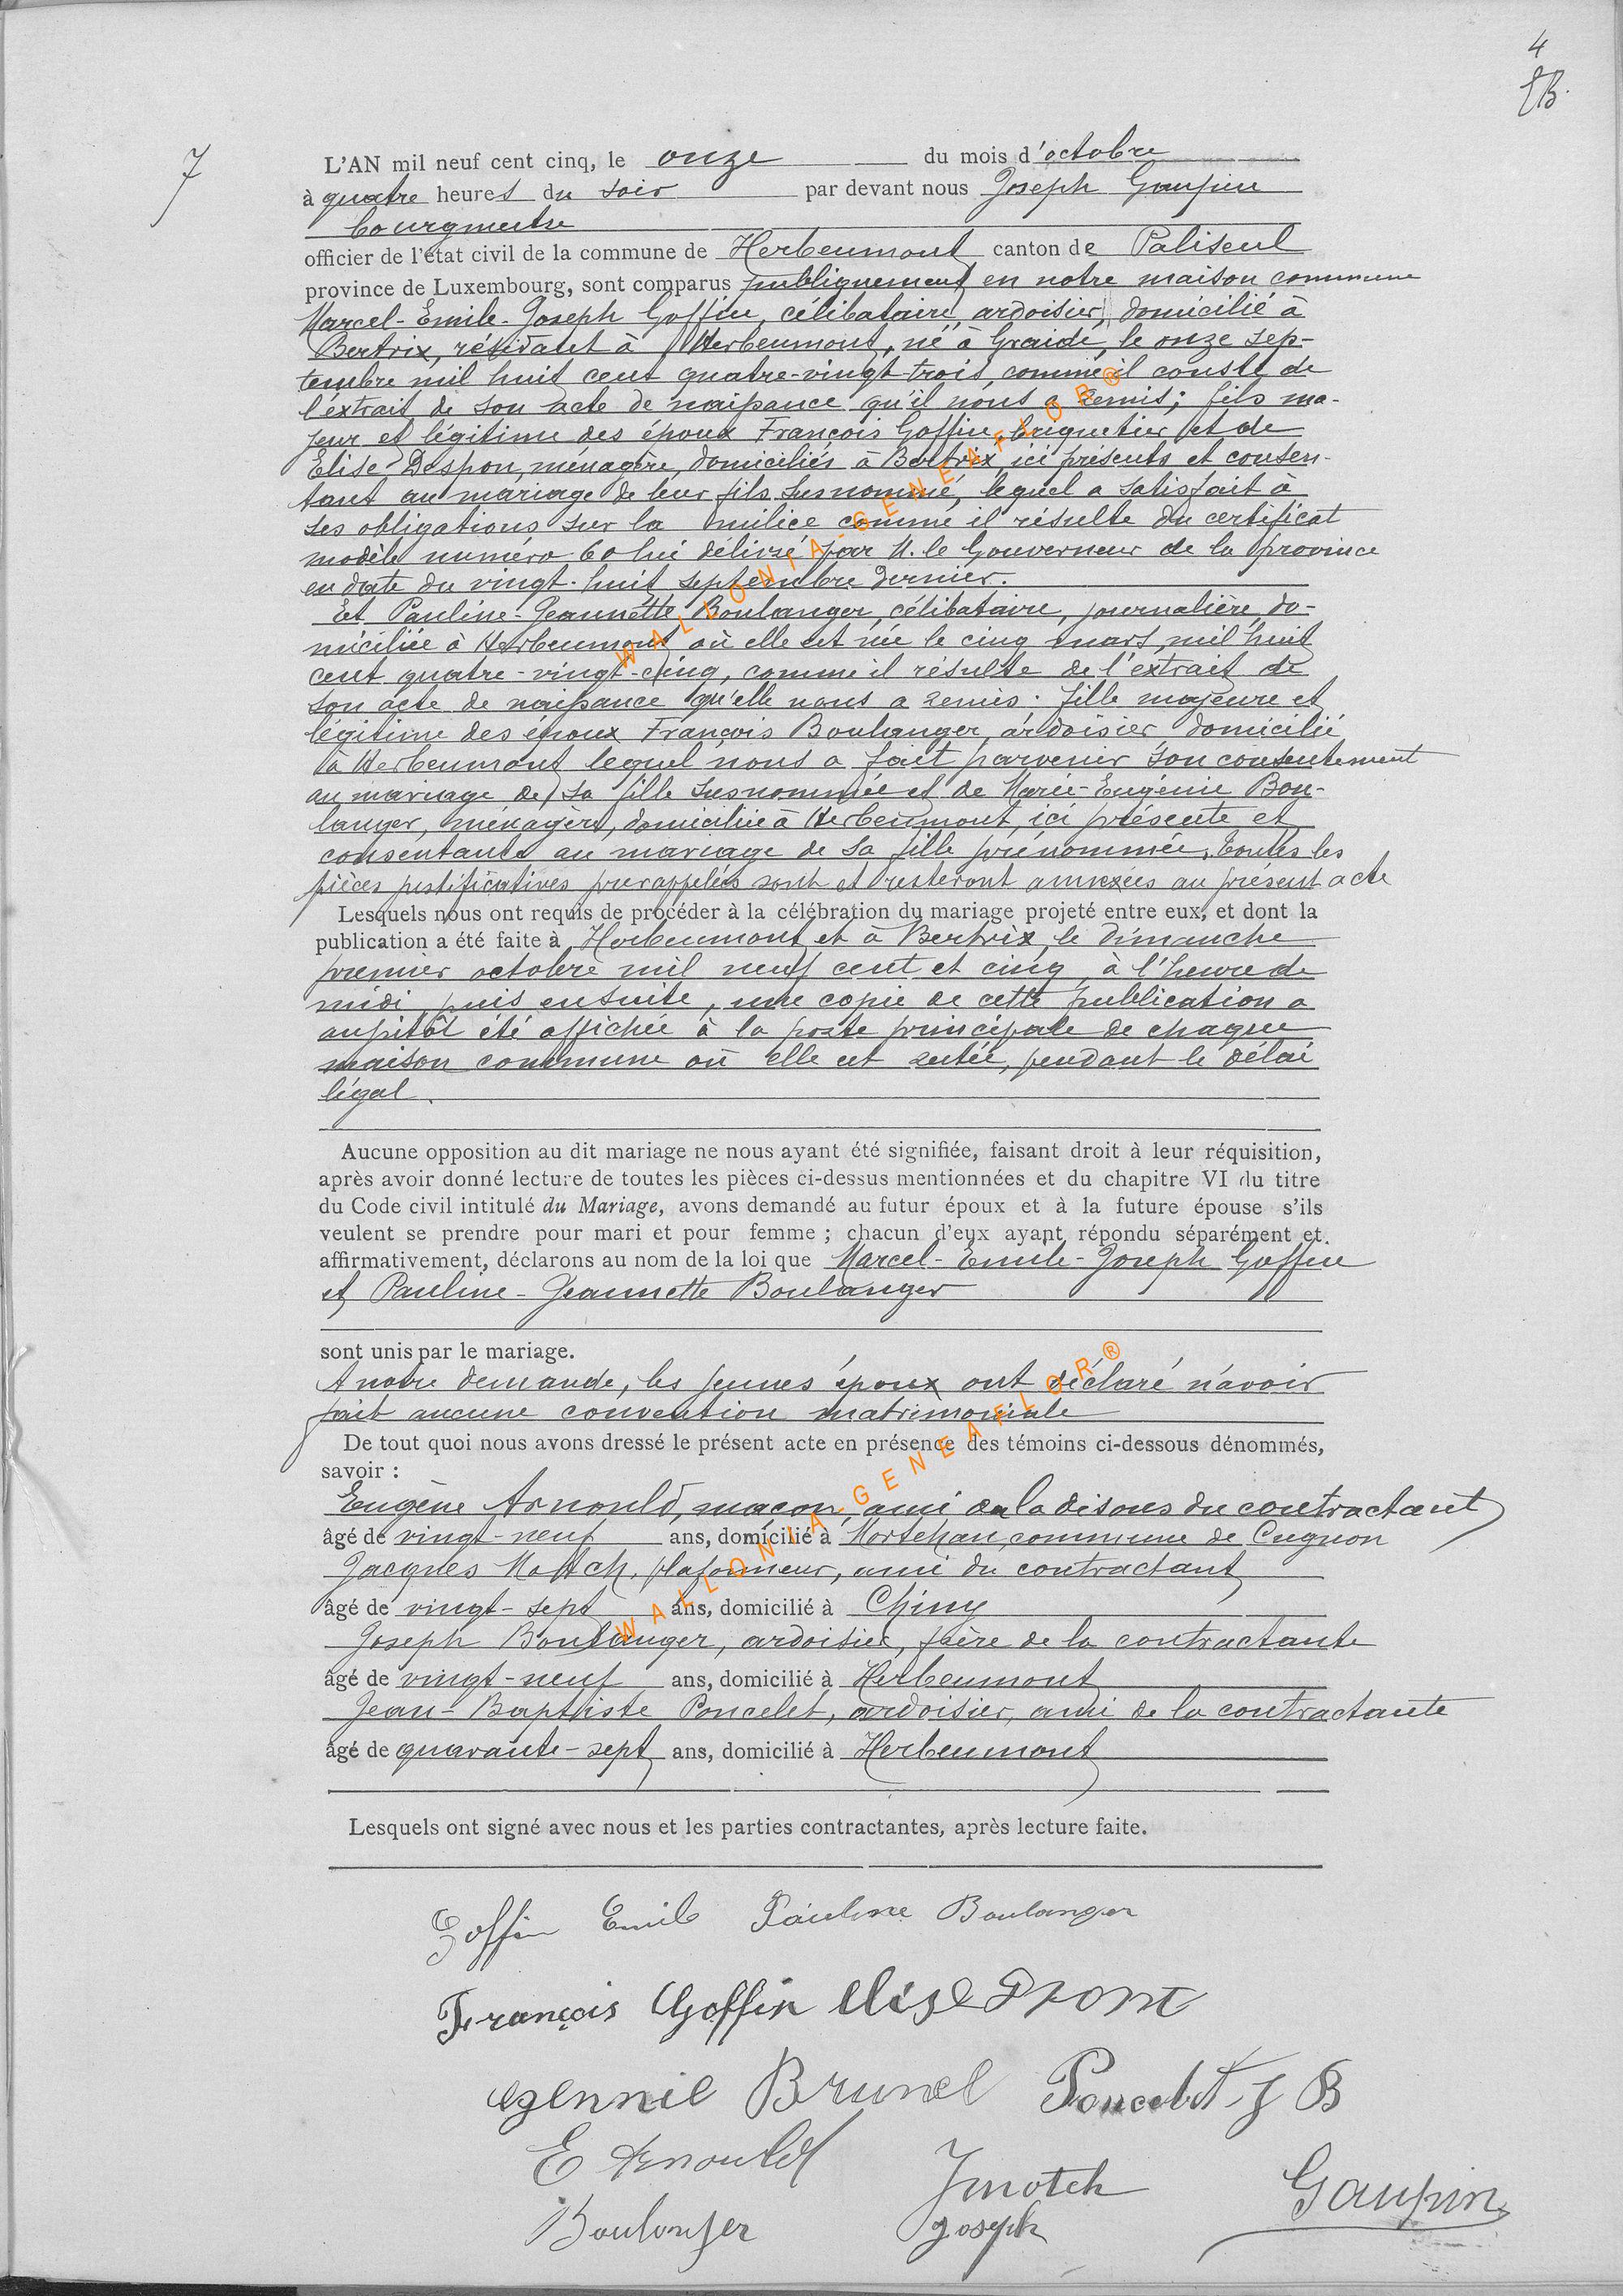 4
7
L'AN mil neuf cent cinq, le onze du mois d'octobre
à quatre heures du soir par devant nous Joseph Gaupin
bourgmestre
officier de l'état civil de la commune de Herbeumont canton de Paliseul
province de Luxembourg, sont comparus publiquement en notre maison commune
Marcel-Emile-Joseph Goffin, célibataire, ardoisier, domicilié à
Bertrix, résidant à Herbeumont, né à Graide, le onze sep-
tembre mil huit cent quatre-vingt-trois, comme il conste de
l'extrait de son acte de naissance qu'il nous a remis; fils ma-
jeur et légitime des époux François Goffin, briquetier et de
Elise Despon, ménagère, domiciliés à Bertrix, ici présents et consen-
tant au mariage de leur fils susnommé, lequel a satisfait à
ses obligations sur la milice comme il résulte du certificat
modèle numéro 60 lui délivré par M. le Gouverneur de la province
en date du vingt-huit septembre dernier.
Et Pauline-Jeannette Boulanger, célibataire, journalière, do-
miciliée à Herbeumont où elle est née le cinq mars mil huit
cent quatre-vingt-cinq, comme il résulte de l'extrait de
son acte de naissance qu'elle nous a remis: fille majeure et
légitime des époux François Boulanger, ardoisier domicilié
à Herbeumont lequel nous a fait parvenir son consentement
au mariage de sa fille susnommée et de Marie-Eugénie Bou-
langer, ménagère, domiciliée à Herbeumont, ici présente et
consentante au mariage de sa fille prénommée. Toutes les
pièces justificatives prérappelées sont et resteront annexées au présent acte
Lesquels nous ont requis de procéder à la célébration du mariage projeté entre eux, et dont la
publication a été faite à Herbeumont et à Bertrix, le dimanche
premier octobre mil neuf cent et cinq à l'heure de
midi puis ensuite, une copie de cette publication a
aussitôt été affichée à la porte principale de chaque
maison commune où elle est restée, pendant le délai
légal.
Aucune opposition au dit mariage ne nous ayant été signifiée, faisant droit à leur réquisition,
après avoir donné lecture de toutes les pièces ci-dessus mentionnées et du chapitre VI du titre
du Code civil intitulé du Mariage, avons demandé au futur époux et à la future épouse s'ils
veulent se prendre pour mari et pour femme ; chacun d'eux ayant répondu séparément et
affirmativement, déclarons au nom de la loi que Marcel-Emile-Joseph Goffin
et Pauline-Jeannette Boulanger
sont unis par le mariage.
A notre demande, les jeunes époux ont déclaré n'avoir
fait aucune convention matrimoniale
De tout quoi nous avons dressé le présent acte en présence des témoins ci-dessous dénommés,
savoir :
Eugène Arnould, maçon, ami du contractant
âgé de vingt-neuf ans, domicilié à Mortehan, commune de Cugnon
Jacques Motch, plafonneur, ami du contractant
âgé de vingt-sept ans, domicilié à Chiny
Joseph Boulanger, ardoisier, frère de la contractante
âgé de vingt-neuf ans, domicilié à Herbeumont
Jean-Baptiste Poncelet, ardoisier, ami de la contractante
âgé de quarante-sept ans, domicilié à Herbeumont
Lesquels ont signé avec nous et les parties contractantes, après lecture faite.
Goffin Emile Pauline Boulanger
François Goffin Elise
Brunel Poncelet J B
E Arnould
J motch Gaupin
Boulonger joseph
WALLONIA-GENEAFLOR®
WALLONIA-GENEAFLOR®